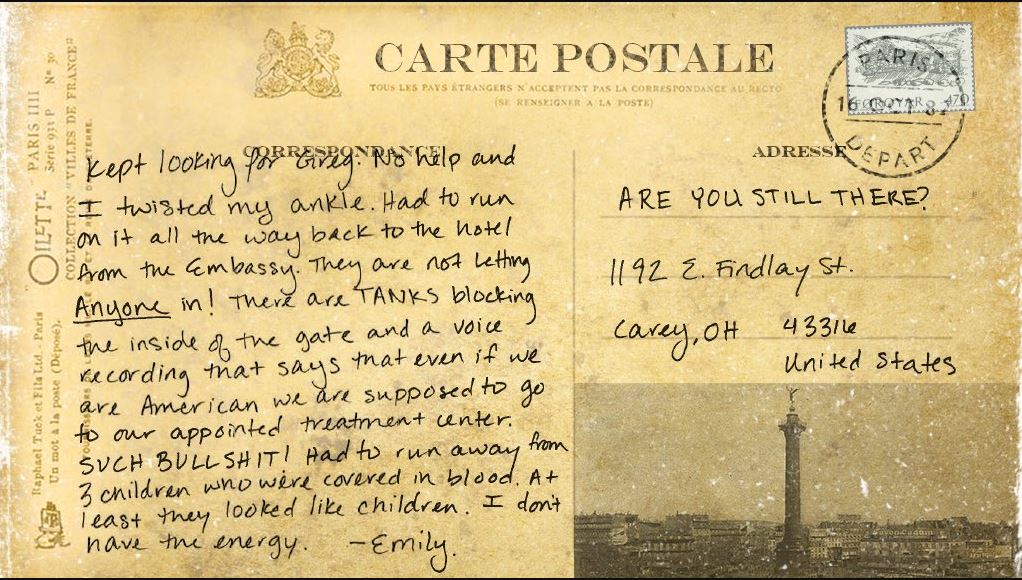 CARTE POSTALE
TOUS LES PAYS ÉTRANGERS N'ACCEPTENT PAS LA CORRESPONDANCE AU RECTO
(SE RENSEIGNER A LA POSTE)
PARIS
FØROYAR 470
DEPART
CORRESPONDANCE
kept looking for Greg. No help and
I twisted my ankle. Had to run
on it all the way back to the hotel
from the Embassy. They are not letting
Anyone in! There are TANKS blocking
the inside of the gate and a voice
recording that says that even if we
are American we are supposed to go
to our appointed treatment center.
SUCH BULLSHIT! Had to run away from
3 children who were covered in blood. At
least they looked like children. I don't
have the energy. -Emily.
ADRESSE
ARE YOU STILL THERE?
1192 E. Findlay St.
Carey, OH 43316
United States
OILETTE "PARIS IIII
Série 933 P Nº 30
COLLECTION "VILLES DE FRANCE"
Raphael Tuck et Fils Ltd. Paris
Un mot à la poste (Déposé).